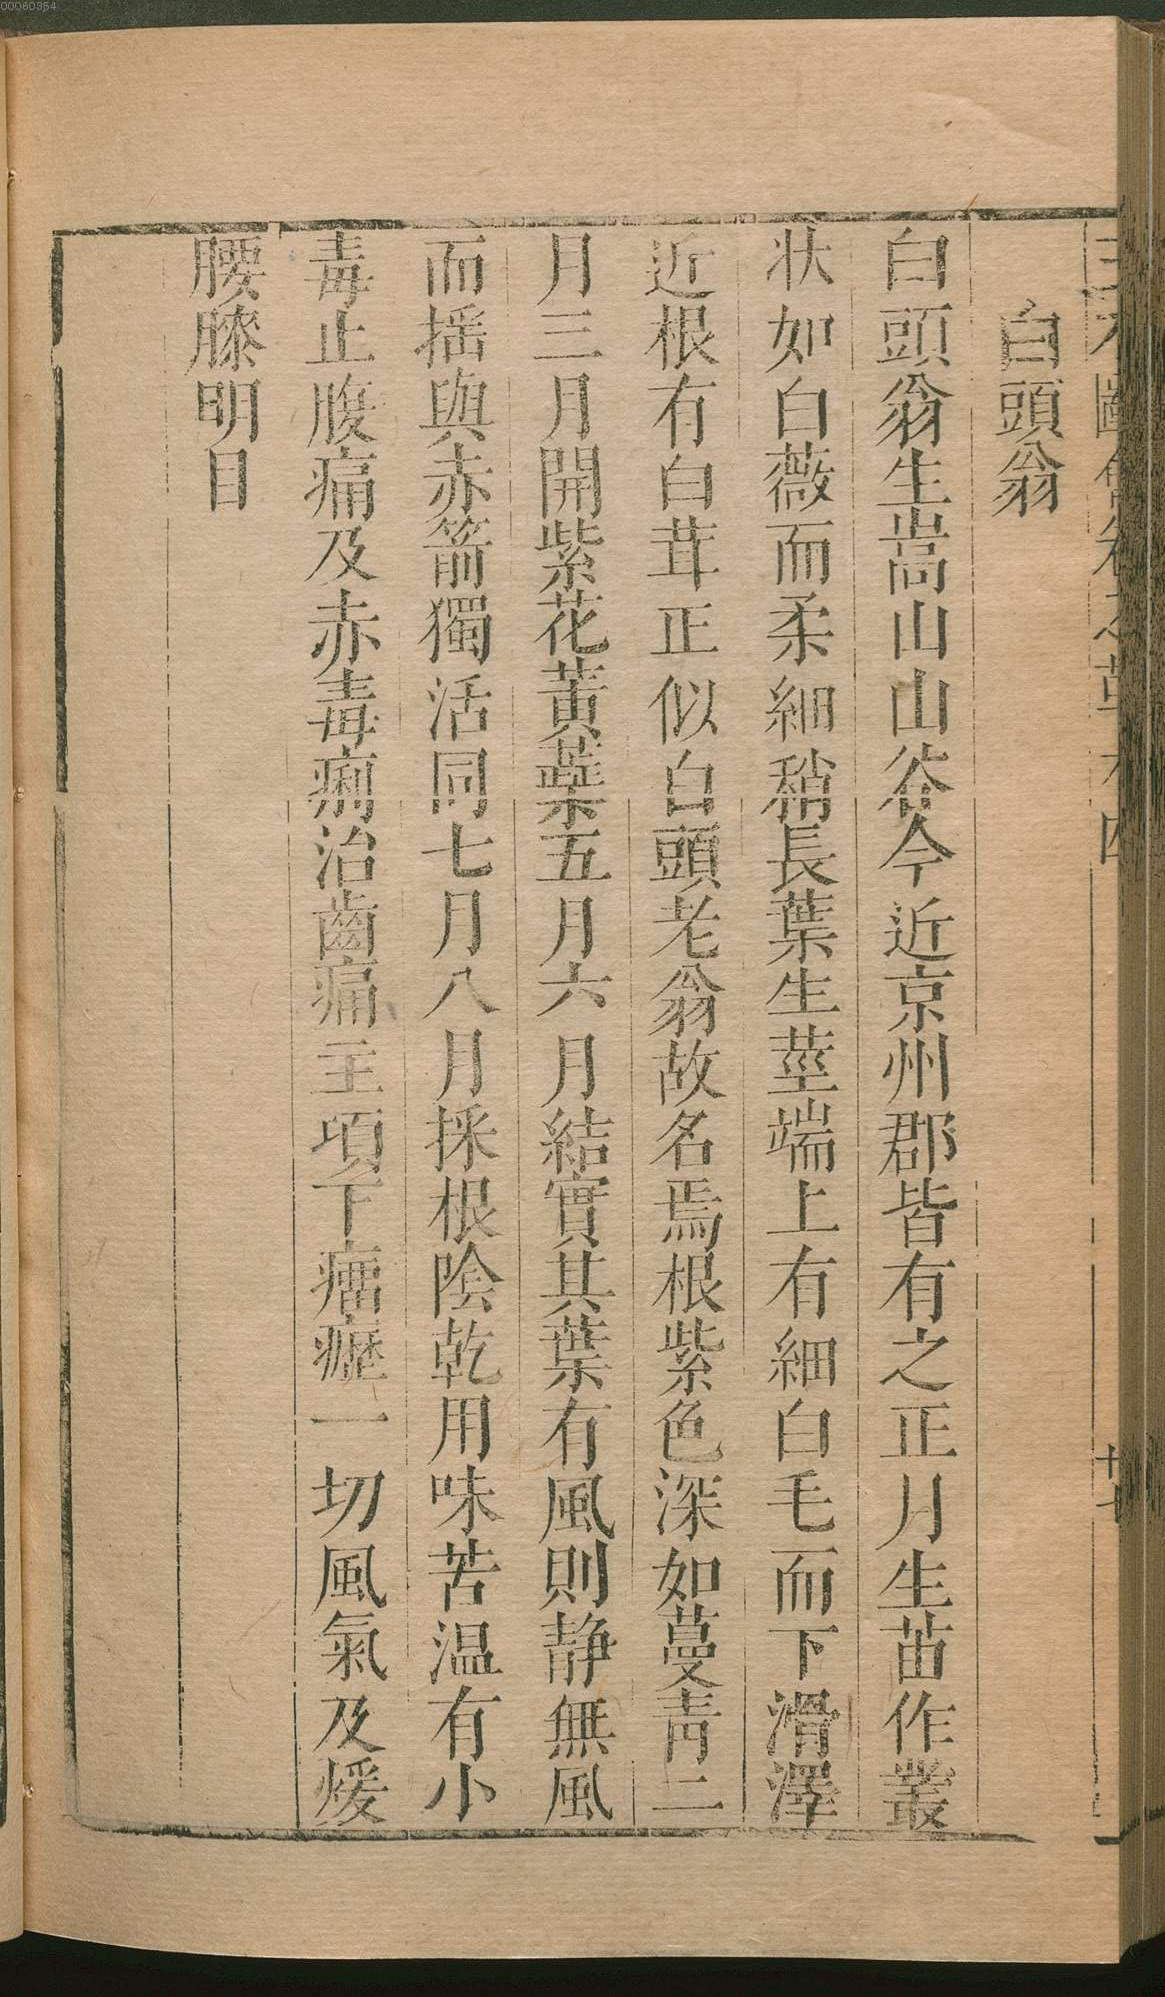 00060354
白頭翁
白頭翁生嵩山山谷今近京州郡皆有之正月生苗作叢
状如白薇而柔細稍長葉生莖端上有細白毛而下滑澤
近根有白茸正似白頭老翁故名焉根紫色深如蔓青二
月三月開紫花黃蘂五月六月結實其葉有風則静無風
而揺與赤箭獨活同七月八月採根陰乾用味苦温有小
毒止腹痛及赤毒痢治齒痛主項下瘤癧一切風氣及煖
腰膝明目